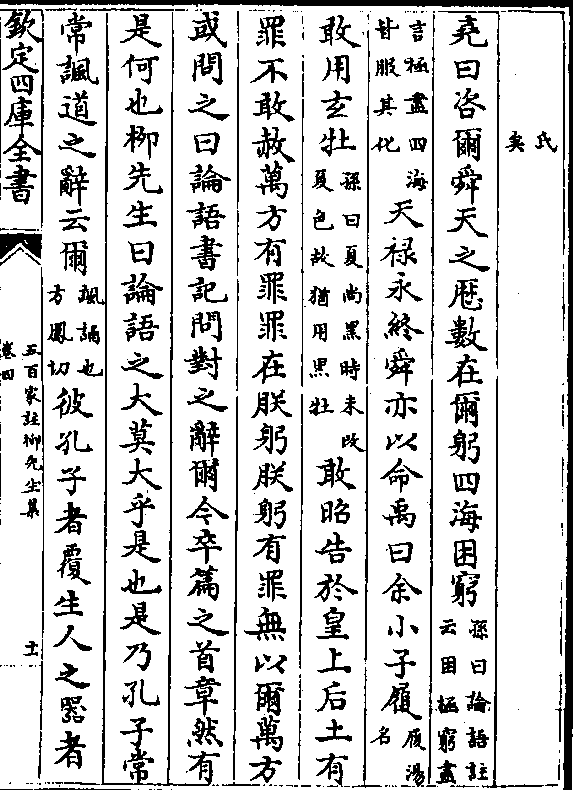 氏
矣
堯曰咨爾舜天之厯數在爾躬四海困窮孫曰論語註云困極窮盡
言極盡四海甘服其化天禄永終舜亦以命禹曰余小子履履湯名
敢用玄牡孫曰夏尚黑時未改夏色故猶用黒牡敢昭告於皇上后土有
罪不敢赦萬方有罪罪在朕躬朕躬有罪無以爾萬方
或問之曰論語書記問對之辭爾今卒篇之首章然有
是何也柳先生曰論語之大莫大乎是也是乃孔子常
常諷道之辭云爾諷誦也方鳳切彼孔子者覆生人之器者
欽定四庫全書
五百家註柳先生集
卷四
十一